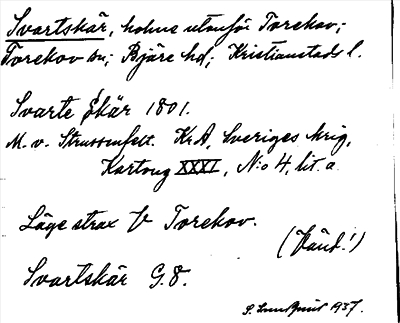 Svartskär, holme utanför Torekov;
Torekov sn; Bjäre hd; Kristianstads l.
Svarte Skär 1801.
M. v. Strussenfelt. KrA, Sveriges krig,
Kartong XXXI, N:o 4, lit. a
Läge strax V Torekov.
(Känt!)
Svartskär G.8.
S. Lundquist 1937.